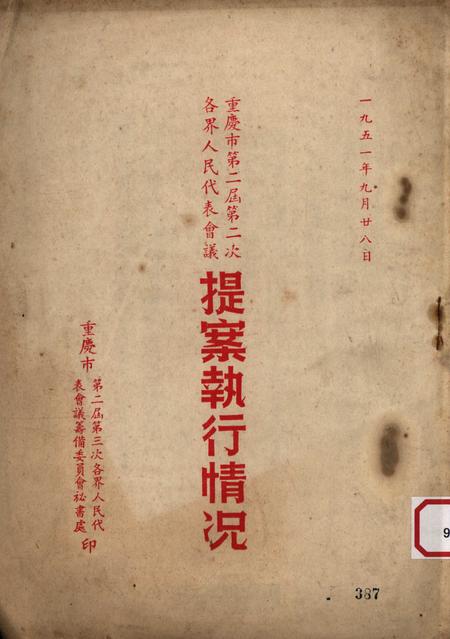 一九五一年九月廿八日
重慶市第二屆第二次
各界人民代表會議
提案執行情况
重慶市
第二屆第三次各界人民代
表會議籌備委員會祕書處
印
9
387